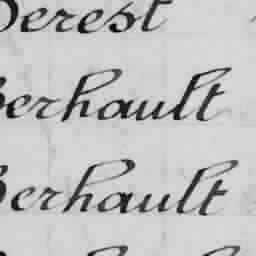 Derest
Berhault
Berhault